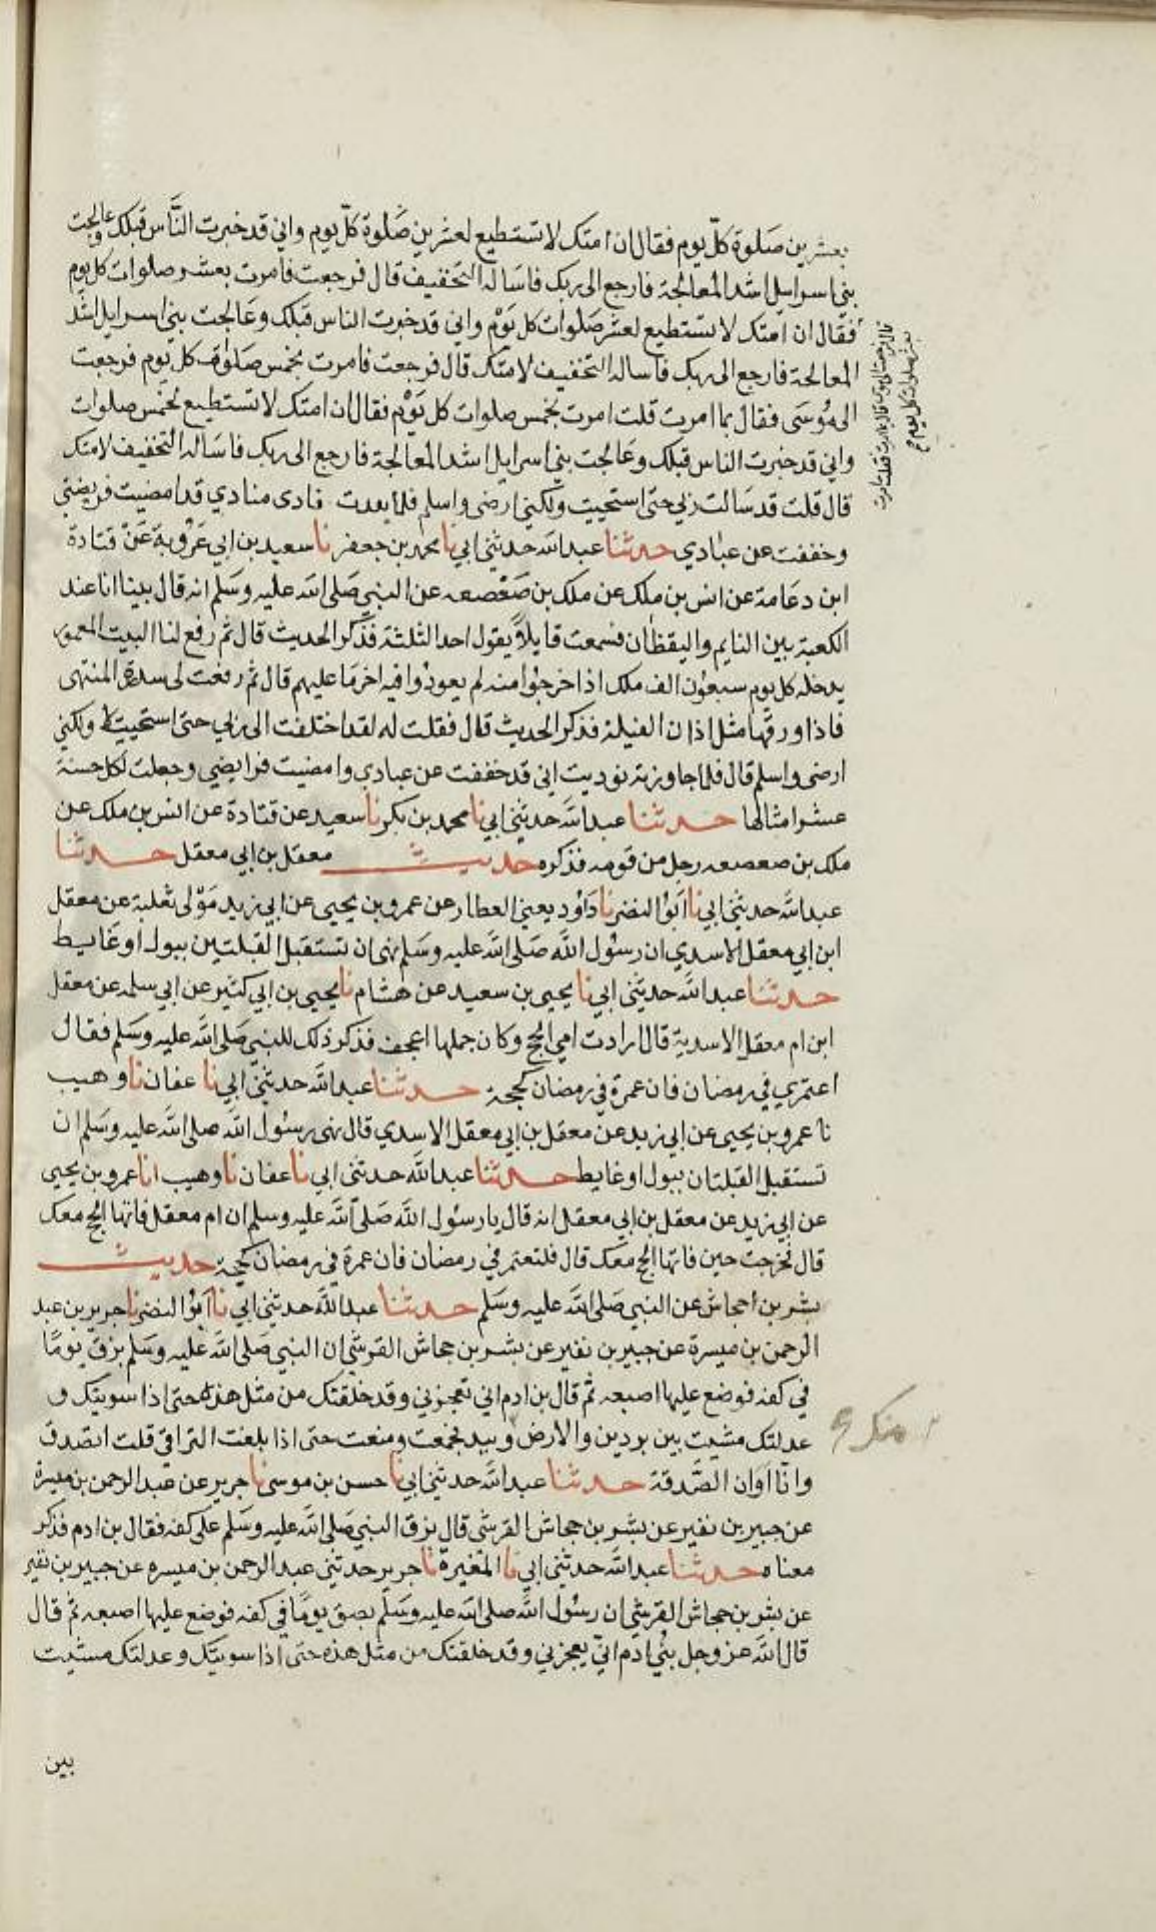 بعشرين صلوة كل يوم فقال ان امتك لا تستطيع لعشرين صلوة كل يوم واني قد خبرت الناس قبلك وعالجت
بني اسرايل اشد المعالجة فارجع الى ربك فاساله التخفيف قال فرجعت فامرت بعشر صلوات كل يوم
فقال ان امتك لا تستطيع لعشر صلوات كل يوم واني قد خبرت الناس قبلك وعالجت بني اسرايل اشد
المعالجة فارجع الى ربك فاساله التخفيف لامتك قال فرجعت فامرت بخمس صلوات كل يوم فرجعت
الى موسى فقال بما امرت قلت امرت بخمس صلوات كل يوم فقال ان امتك لا تستطيع لخمس صلوات
واني قد خبرت الناس قبلك وعالجت بني اسرايل اشد المعالجة فارجع الى ربك فاساله التخفيف لامتك
قال قلت قد سالت ربي حتى استحييت ولكني ارضى واسلم فلما بعدت نادى منادي قد امضيت فريضتي
وخففت عن عبادي حدثنا عبد الله حدثني ابي نا محمد بن جعفر نا سعيد بن ابي عروبة عن قتادة
ابن دعامة عن انس بن ملك عن ملك بن صعصعه عن النبي صلى الله عليه وسلم انه قال بينا انا عند
الكعبة بين النايم واليقظان فسمعت قايلا يقول احد الثلثة فذكر الحديث قال ثم رفع لنا البيت المعمور
يدخله كل يوم سبعون الف ملك اذا خرجوا منه لم يعودوا فيه اخر ما عليهم قال ثم رفعت لي سدرة المنتهى
فاذا ورقها مثل اذان الفيلة فذكر الحديث قال فقلت له لقد اختلفت الى ربي حتى استحييت لا ولكني
ارضى واسلم قال فلما جاوزته نوديت اني قد خففت عن عبادي وامضيت فرايضي وجعلت لكل حسنة
عشر امثالها حدثنا عبد الله حدثني ابي نا محمد بن بكر نا سعيد عن قتادة عن انس بن ملك عن
ملك بن صعصعه رجل من قومه فذكره حديث معقل بن ابي معقل حدثنا
عبد الله حدثني ابي نا ابو النضر نا داود يعني العطار عن عمرو بن يحيى عن ابي زيد مولى ثعلبة عن معقل
ابن ابي معقل الاسدي ان رسول الله صلى الله عليه وسلم نهى ان تستقبل القبلتين ببول او غايط
حدثنا عبد الله حدثني ابي نا يحيى بن سعيد عن هشام نا يحيى بن ابي كثير عن ابي سلمه عن معقل
ابن ام معقل الاسدية قال ارادت امي الحج وكان جملها اعجف فذكر ذلك للنبي صلى الله عليه وسلم فقال
اعتمري في رمضان فان عمرة في رمضان كحجة حدثنا عبد الله حدثني ابي نا عفان نا وهيب
نا عمرو بن يحيى عن ابي زيد عن معقل بن ابي معقل الاسدي قال نهى رسول الله صلى الله عليه وسلم ان
تستقبل القبلتان ببول او غايط حدثنا عبد الله حدثني ابي نا عفان نا وهيب انا عمرو بن يحيى
عن ابي زيد عن معقل بن ابي معقل انه قال يا رسول الله صلى الله عليه وسلم ان ام معقل فاتها الحج معك
قال فخرجت حين فاتها الحج معك قال فلتعتمر في رمضان فان عمرة في رمضان كحجة حديث
بشر بن اجحاش عن النبي صلى الله عليه وسلم حدثنا عبد الله حدثني ابي نا ابو النضر نا جرير بن عبد
الرحمن بن ميسرة عن جبير بن نفير عن بشر بن جحاش القرشي ان النبي صلى الله عليه وسلم بزق يوما
في كفه فوضع عليها اصبعه ثم قال بن ادم اني تعجزني وقد خلقتك من مثل هذه حتى اذا سويتك و
عدلتك مشيت بين بردين والارض وبيد فجمعت ومنعت حتى اذا بلغت التراقي قلت اتصدق
وانا اوان الصدقة حدثنا عبد الله حدثني ابي نا حسن بن موسى نا جرير عن عبد الرحمن بن ميسرة
عن جبير بن نفير عن بشر بن جحاش القرشي قال بزق النبي صلى الله عليه وسلم على كفه فقال بن ادم فذكر
معناه حدثنا عبد الله حدثني ابي نا المغيرة نا جرير حدثني عبد الرحمن بن ميسره عن جبير بن نفير
عن بشر بن جحاش القرشي ان رسول الله صلى الله عليه وسلم بصق يوما في كفه فوضع عليها اصبعه ثم قال
قال الله عز وجل بني ادم اني يعجزني وقد خلقتك من مثل هذه حتى اذا سويتك وعدلتك مشيت
بين
قال فرجعت الى موسى قال بما امرت قلت امرت
بعشر صلوات كل يوم
منك